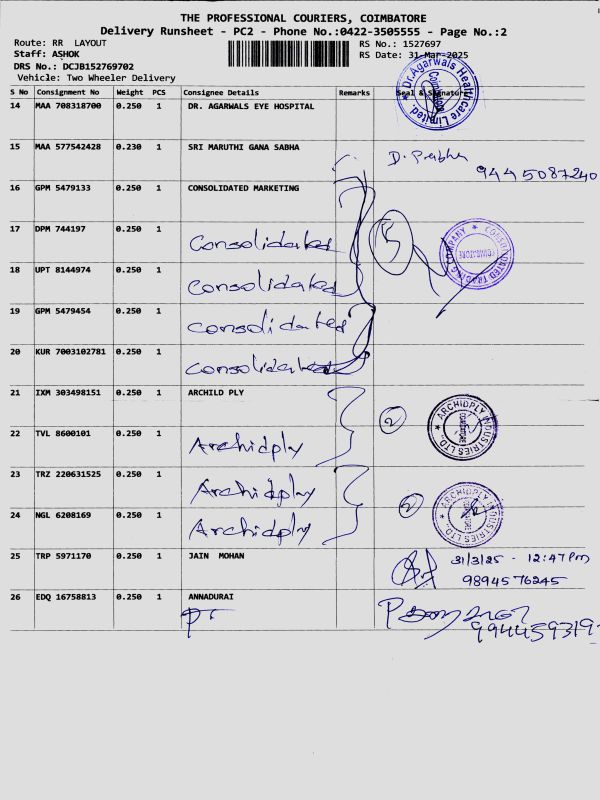 THE PROFESSIONAL COURIERS, COIMBATORE
Delivery Runsheet - PC2 - Phone No.:0422-3505555 - Page No.:2
Route: RR LAYOUT
RS No.: 1527697
Staff: ASHOK
RS Date: 31-Mar-2025
DRS No.: DCJB152769702
Vehicle: Two Wheeler Delivery
S No Consignment No Weight PCS Consignee Details Remarks Seal & Signature
Dr.Agarwals Healthcare Limited. Coimbatore
14 MAA 708318700 0.250 1 DR. AGARWALS EYE HOSPITAL
15 MAA 577542428 0.230 1 SRI MARUTHI GANA SABHA
D. Preibha
9445087240
16 GPM 5479133 0.250 1 CONSOLIDATED MARKETING
17 DPM 744197 0.250 1 Consolidated
5
CONSOLIDATED TRADING COMPANY
18 UPT 8144974 0.250 1 Consolidated
19 GPM 5479454 0.250 1 Consolidated
20 KUR 7003102781 0.250 1 Consolidated
21 IXM 303498151 0.250 1 ARCHILD PLY
2
ARCHIDPLY INDUSTRIES LTD. COIMBATORE
22 TVL 8600101 0.250 1 Archidply
23 TRZ 220631525 0.250 1 Archidply
2
ARCHIDPLY INDUSTRIES LTD.
24 NGL 6208169 0.250 1 Archidply
25 TRP 5971170 0.250 1 JAIN MOHAN
31/3/25 - 12:47 Pm
9894576245
26 EDQ 16758813 0.250 1 ANNADURAI
9944459319